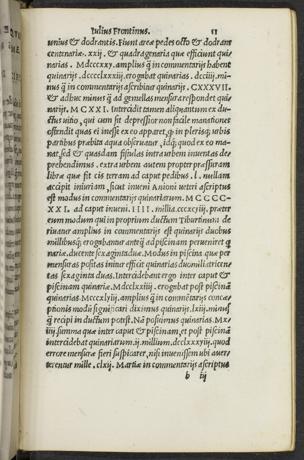 Iulius Frontinus. 11
unius & dodrantis. Fiunt areæ pedes octo & dodran
centenariæ. xxij. & quadragenaria quæ efficiunt quin
narias. MDccxxv. amplius q̃ in commentarijs habent
quinarijs. Dccccklxxiij. erogabat quinarias. Dcciiij. mi-
nus q̃ in commentarijs ascribitur quinarijs. CXXXVII.
& adhuc minus q̃ ad gemellas mensura respondet qui-
narijs. MCXXI. Intercidit tamen aliquantum ex du-
ctus uitio, qui cum sit depressior non facile manationes
ostendit quas ei inesse ex eo apparet, q̃ in plerisq; urbis
partibus præbita aqua obseruatur, idq; quod ex eo ma-
nat, sed & quasdam fistulas intra urbem inuentas de-
præhendimus. extra urbem autem propter pressuram
libræ quæ fit cis terram ad caput pedibus. l. nullam
accipit iniuriam, sicut inueni Anioni ueteri ascriptus
est modus in commentarijs quinariarum MCCCC-
XXI. ad caput inueni. IIII. millia. cccxcviij. præter
eum modum qui in proprium ductum Tiburtinensium de
riuatur amplius in commentarijs est quinarijs duobus
millibusq; erogabantur anteq̃ ad piscinam perueniret q
nariæ ducentæ sexagintaduæ. Modus in piscina quæ per
mensuras positas initur efficit quinariaduomilliatrecen
tas sexaginta duas. Intercidebant ergo inter caput &
piscinam quinariæ. MDcclxxiiij. erogabat post piscinam
quinarias MCccxlviij. amplius q̃ in commentarijs conce
ptionis modum significari diximus quinarijs. lxix. minus
q̃ recipi in ductum potest. Nã posuimus quinarias. Mxv
iiij summa quæ inter caput & piscinam, et post piscinã
intercidebat quinariarum. ij. millium. Dclxxxviiij. quod
errore mensuræ fieri suspicarer, nisi inuenissem ubi auer-
terentur mille. clxij. Martiæ in commentarijs ascriptus
b iij